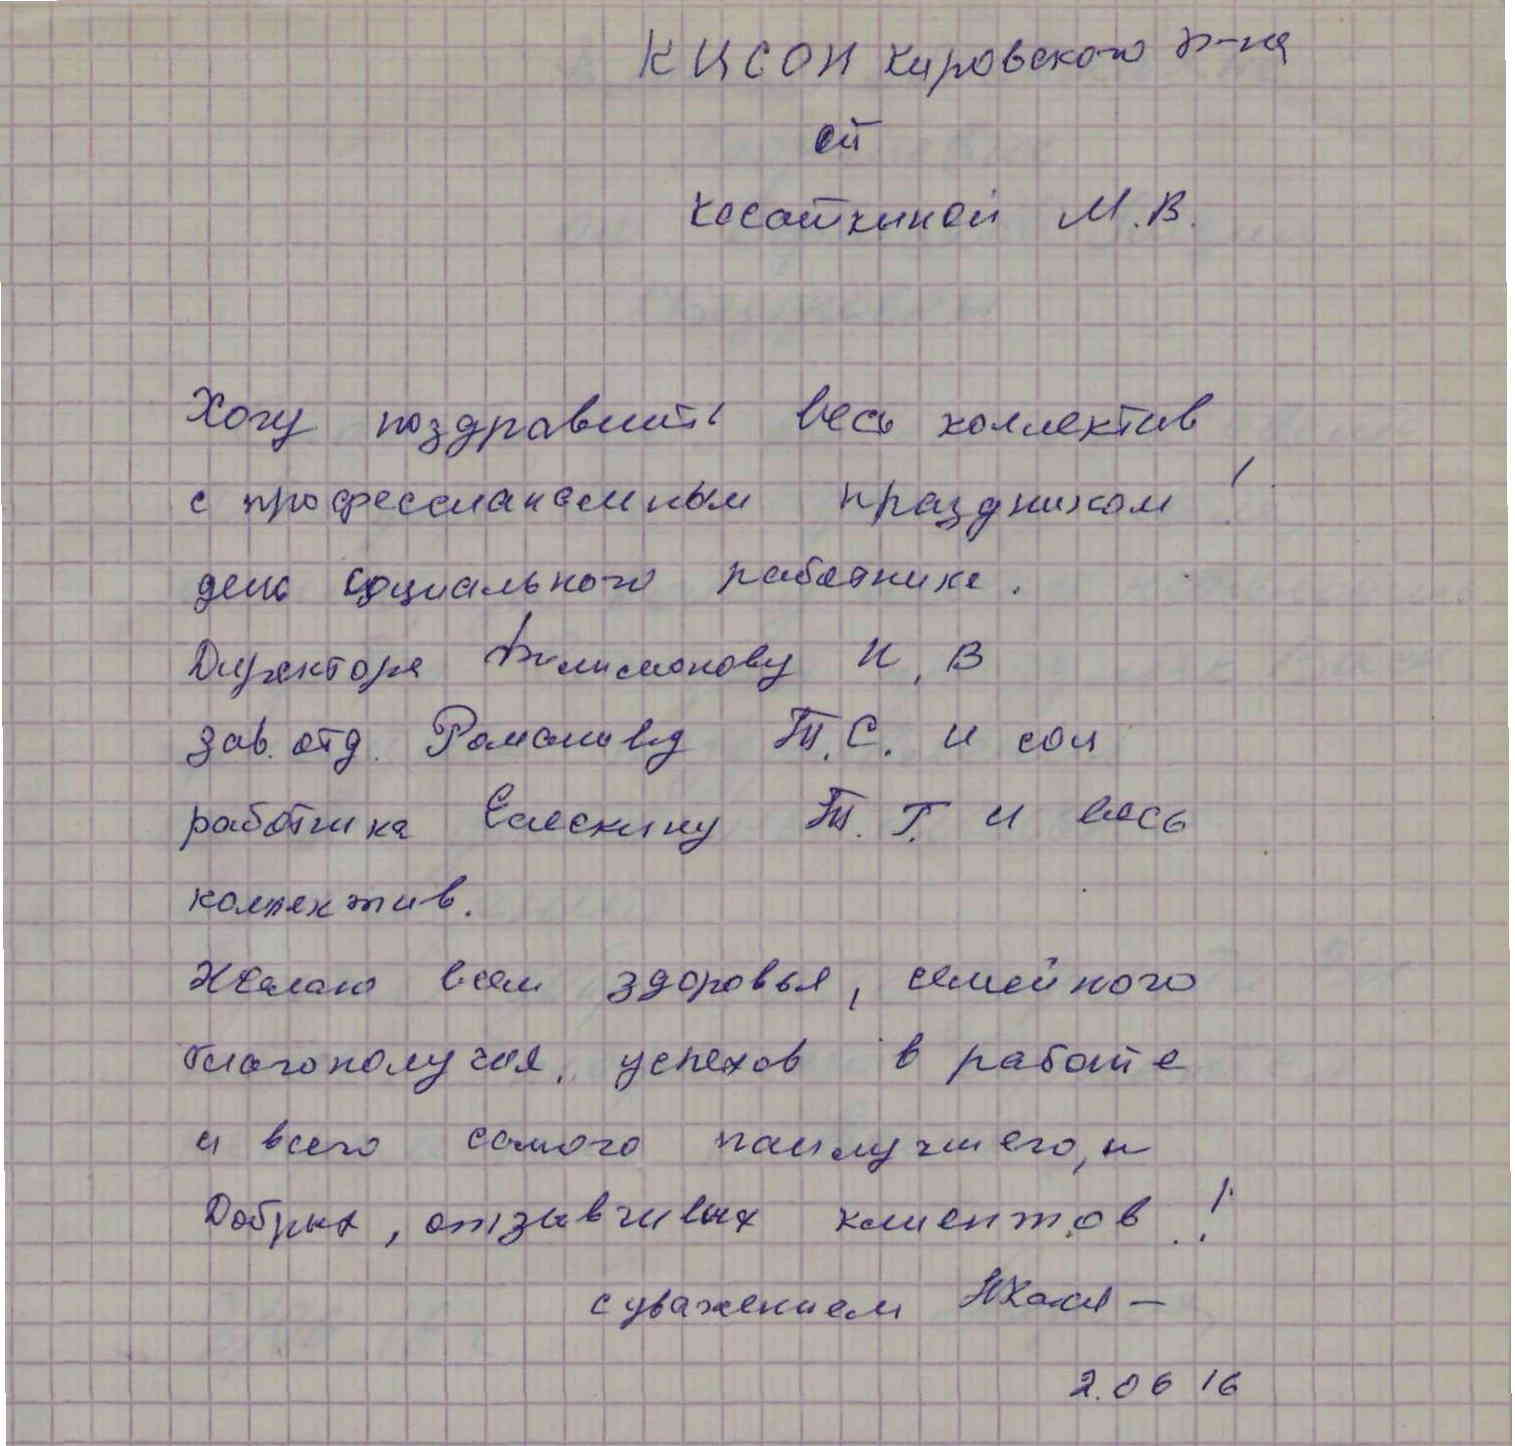 КЦСОН Кировского р-на
от
Косаткиной М.В.
Хочу поздравить весь коллектив
с профессианальным праздником!
день социального работника.
Директора Филимонову И.В
зав. отд. Романову Т.С. и соц
работника Т.Г. и весь
коллектив.
Желаю всем здоровья, семейного
благополучия, успехов в работе
и всего самого наилучшего, и
Добрых, отзывчивых клиентов!
с уважением
2.06 16